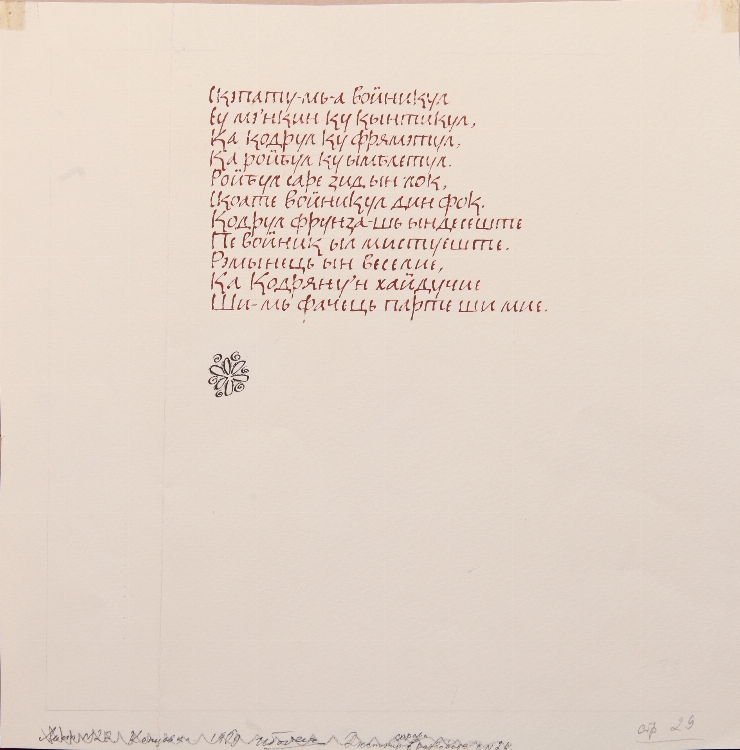 Скэпату-мь-а войникул
Еу мэ'нкин ку кынтикул,
Ка кодрул ку фрямэтул,
Ка ройбул ку ымблетул.
Ройбул саре зид ын лок,
Скоате войникул дин фок.
Кодрул фрунза-шь ындесеште
Пе войник ыл мистуеште.
Рэмынець ын веселие,
Ка Кодряну'н хайдучие
Ши-мь фачець парте ши мие.
стр 29